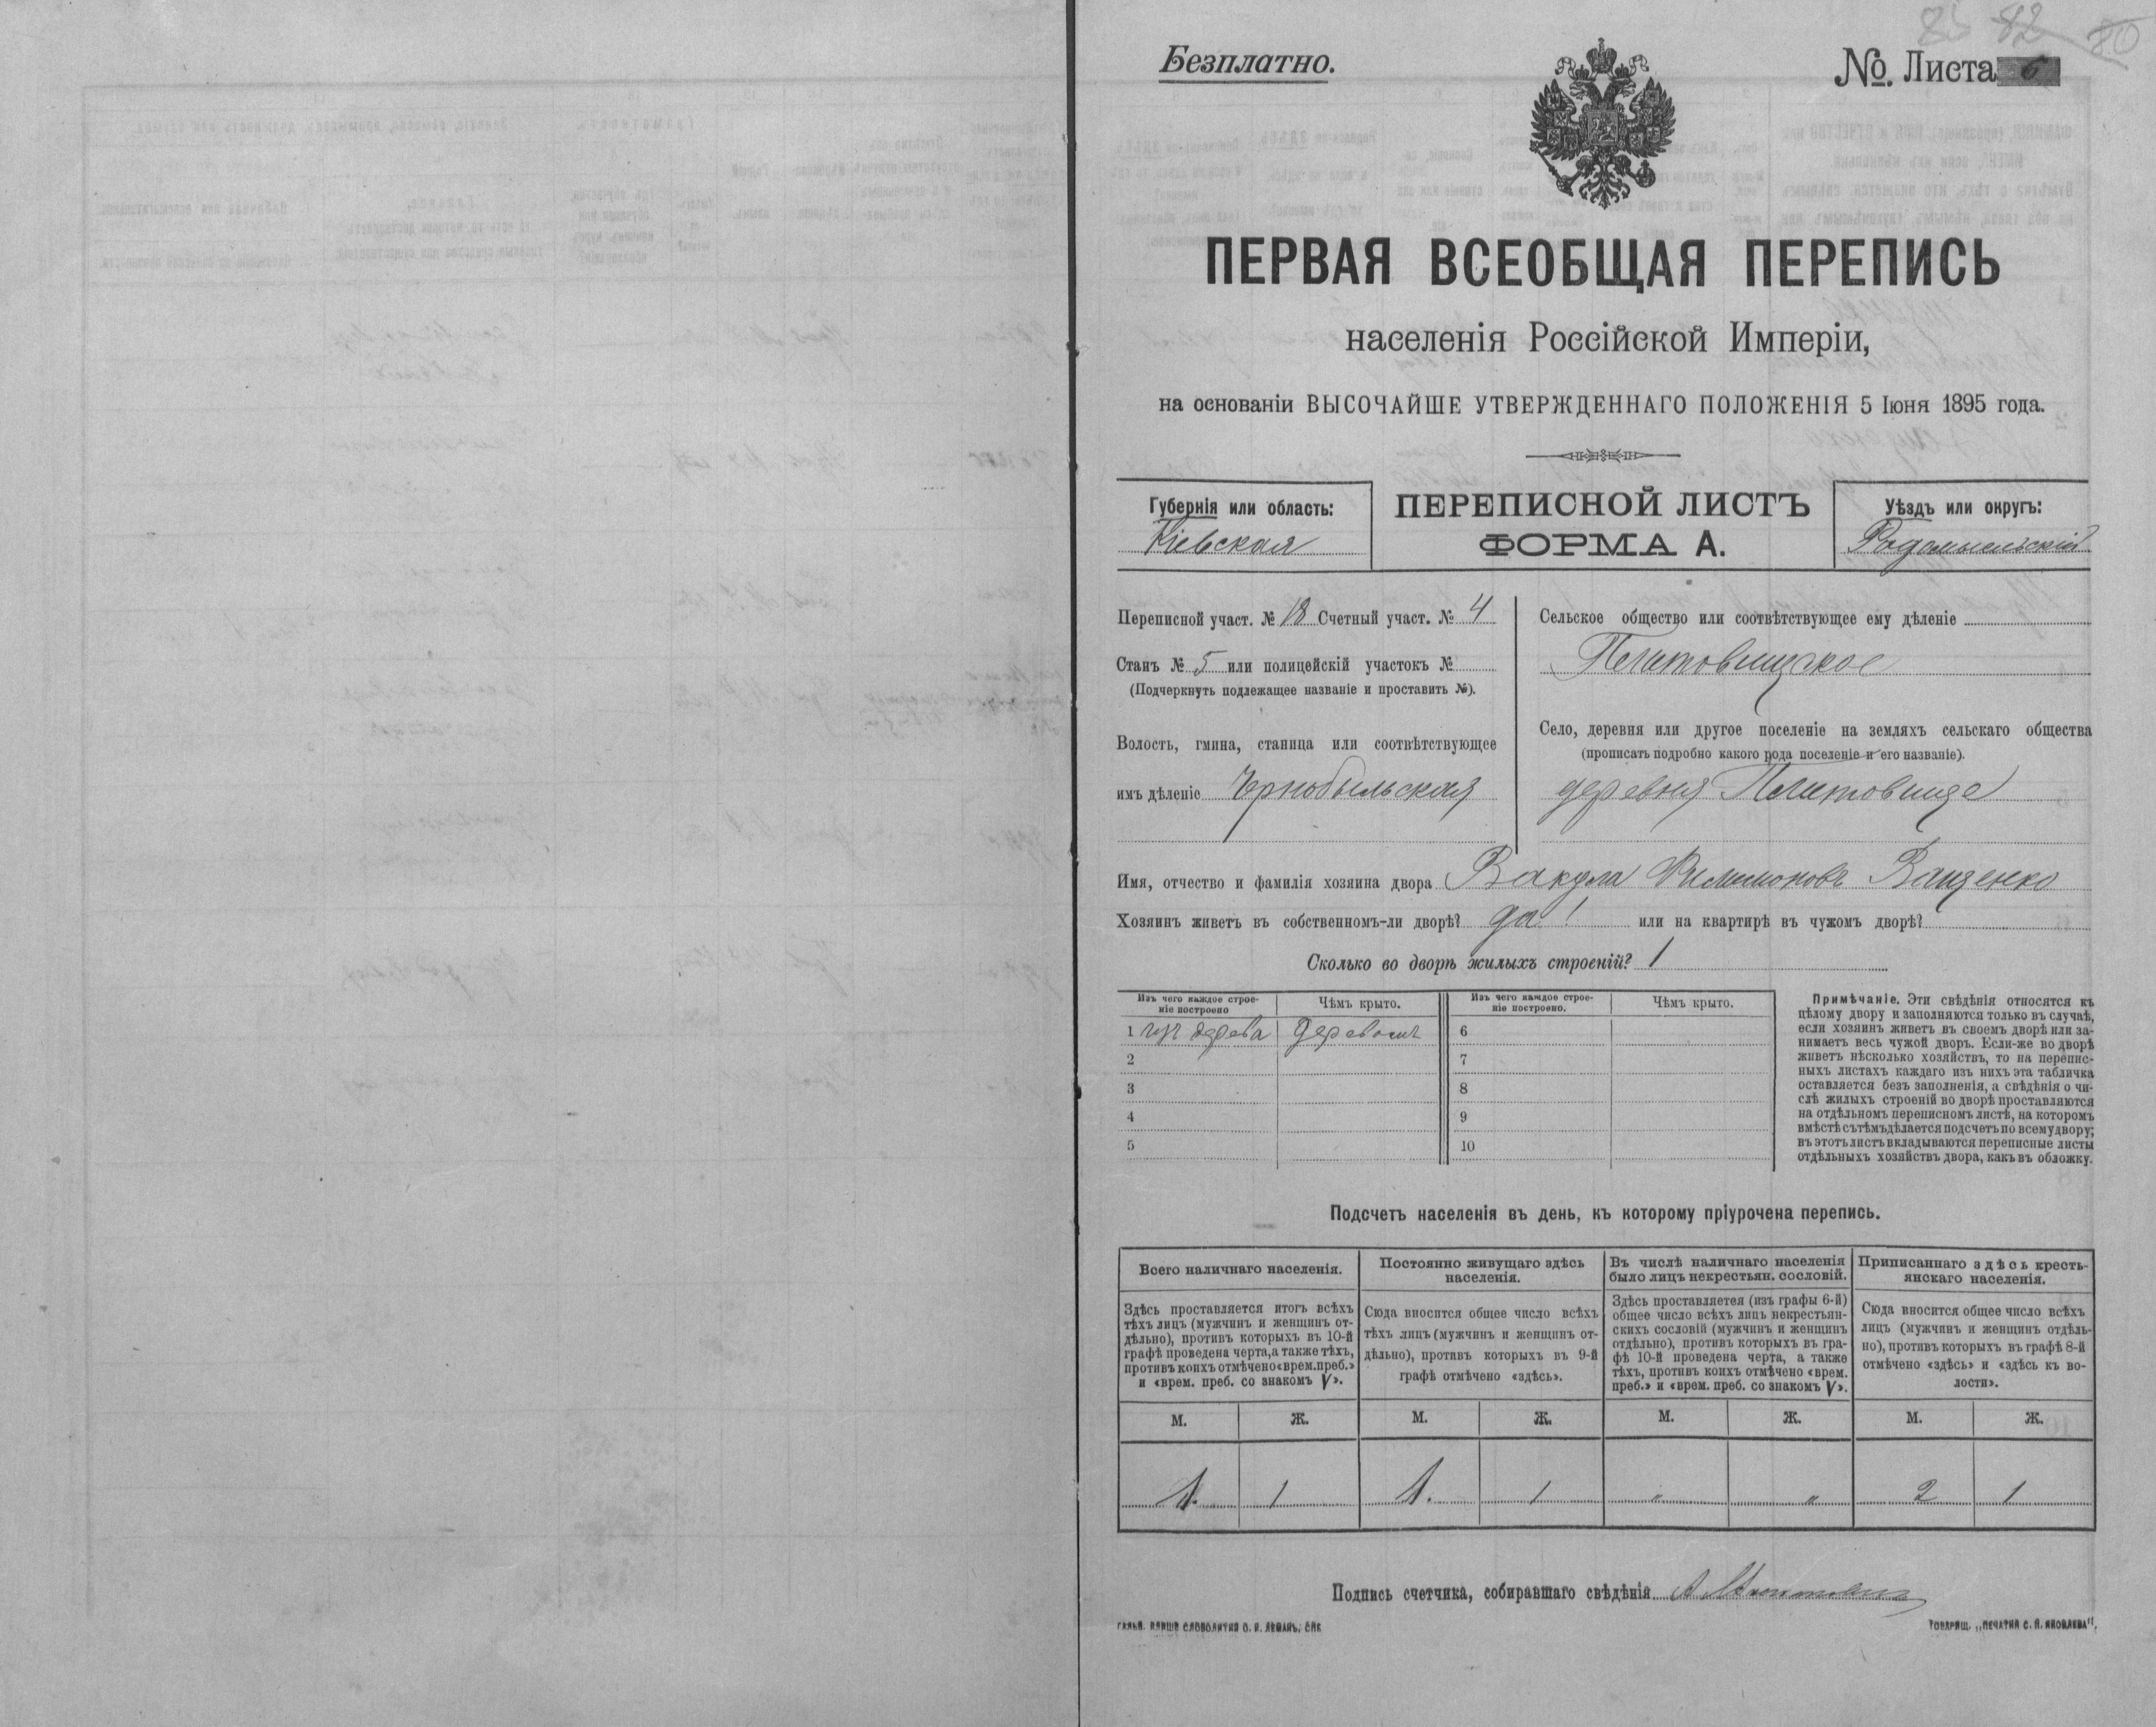 85 82 80
Безплатно.
№. Листа 6
ПЕРВАЯ ВСЕОБЩАЯ ПЕРЕПИСЬ
населенія Россійской Имперіи,
на основаніи ВЫСОЧАЙШЕ УТВЕРЖДЕННАГО ПОЛОЖЕНІЯ 5 Іюня 1895 года.
Губернія или область:
Кіевская
ПЕРЕПИСНОЙ ЛИСТЪ
ФОРМА А.
Уѣздъ или округъ:
Радомысльскій
Переписной участ. № 18 Счетный участ. № 4
Станъ № 5 или полицейскій участокъ №
(Подчеркнуть подлежащее названіе и проставить №).
Волость, гмина, станица или соотвѣтствующее
имъ дѣленіе Чернобыльская
Сельское общество или соотвѣтствующее ему дѣленіе
Плитовищское
Село, деревня или другое поселеніе на земляхъ сельскаго общества
(прописать подробно какого рода поселеніе и его названіе).
деревня Плитовище
Имя, отчество и фамилія хозяина двора Вакула Филимоновъ Ващенко
Хозяинъ живетъ въ собственномъ-ли дворѣ? да! или на квартирѣ въ чужомъ дворѣ?
Сколько во дворѣ жилыхъ строеній? 1
Изъ чего каждое строе-
ніе построено
Чѣмъ крыто.
Изъ чего каждое строе-
ніе построено.
Чѣмъ крыто.
1 изъ дерева Деревомъ 6
2 7
3 8
4 9
5 10
Примѣчаніе. Эти свѣдѣнія относятся къ
цѣлому двору и заполняются только въ случаѣ,
если хозяинъ живетъ въ своемъ дворѣ или за-
нимаетъ весь чужой дворъ. Если-же во дворѣ
живетъ нѣсколько хозяйствъ, то на перепис-
ныхъ листахъ каждаго изъ нихъ эта табличка
оставляется безъ заполненія, а свѣдѣнія о чи-
слѣ жилыхъ строеній во дворѣ проставляются
на отдѣльномъ переписномъ листѣ, на которомъ
вмѣстѣ съ тѣмъ дѣлается подсчетъ по всему двору;
въ этотъ листъ вкладываются переписные листы
отдѣльныхъ хозяйствъ двора, какъ въ обложку.
Подсчетъ населенія въ день, къ которому пріурочена перепись.
Всего наличнаго населенія.
Здѣсь проставляется итогъ всѣхъ
тѣхъ лицъ (мужчинъ и женщинъ от-
дѣльно), противъ которыхъ въ 10-й
графѣ проведена черта, а также тѣхъ,
противъ коихъ отмѣчено «врем. преб.»
и «врем. преб. со знакомъ V».
Постоянно живущаго здѣсь
населенія.
Сюда вносится общее число всѣхъ
тѣхъ лицъ (мужчинъ и женщинъ от-
дѣльно), противъ которыхъ въ 9-й
графѣ отмѣчено «здѣсь».
Въ числѣ наличнаго населенія
было лицъ некрестьян. сословій.
Здѣсь проставляется (изъ графы 6-й)
общее число всѣхъ лицъ некрестьян-
скихъ сословій (мужчинъ и женщинъ
отдѣльно), противъ которыхъ въ гра-
фѣ 10-й проведена черта, а также
тѣхъ, противъ коихъ отмѣчено «врем.
преб.» и «врем. преб. со знакомъ V».
Приписаннаго здѣсь кресть-
янскаго населенія.
Сюда вносится общее число всѣхъ
лицъ (мужчинъ и женщинъ отдѣль-
но), противъ которыхъ въ графѣ 8-й
отмѣчено «здѣсь» и «здѣсь къ во-
лости».
М. Ж. М. Ж. М. Ж. М. Ж.
1. 1 1. 1 " " 2 1
Подпись счетчика, собиравшаго свѣдѣнія
ГАЛЬВ. КЛИШЕ СЛОВОЛИТНЯ О. И. ЛЕМАНЪ, СПБ
ТОВАРИЩ. „ПЕЧАТНЯ С. П. ЯКОВЛЕВА".